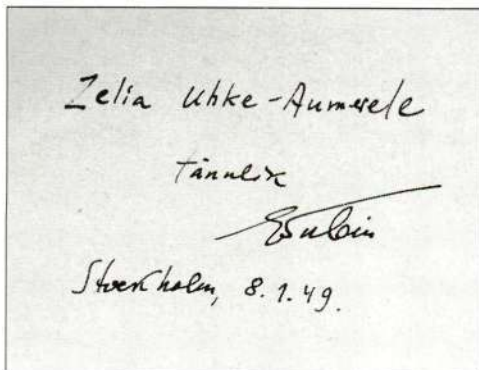 Zelia Uhke-Aumerele
tänulik
ETubin
Stockholm, 8.1.49.